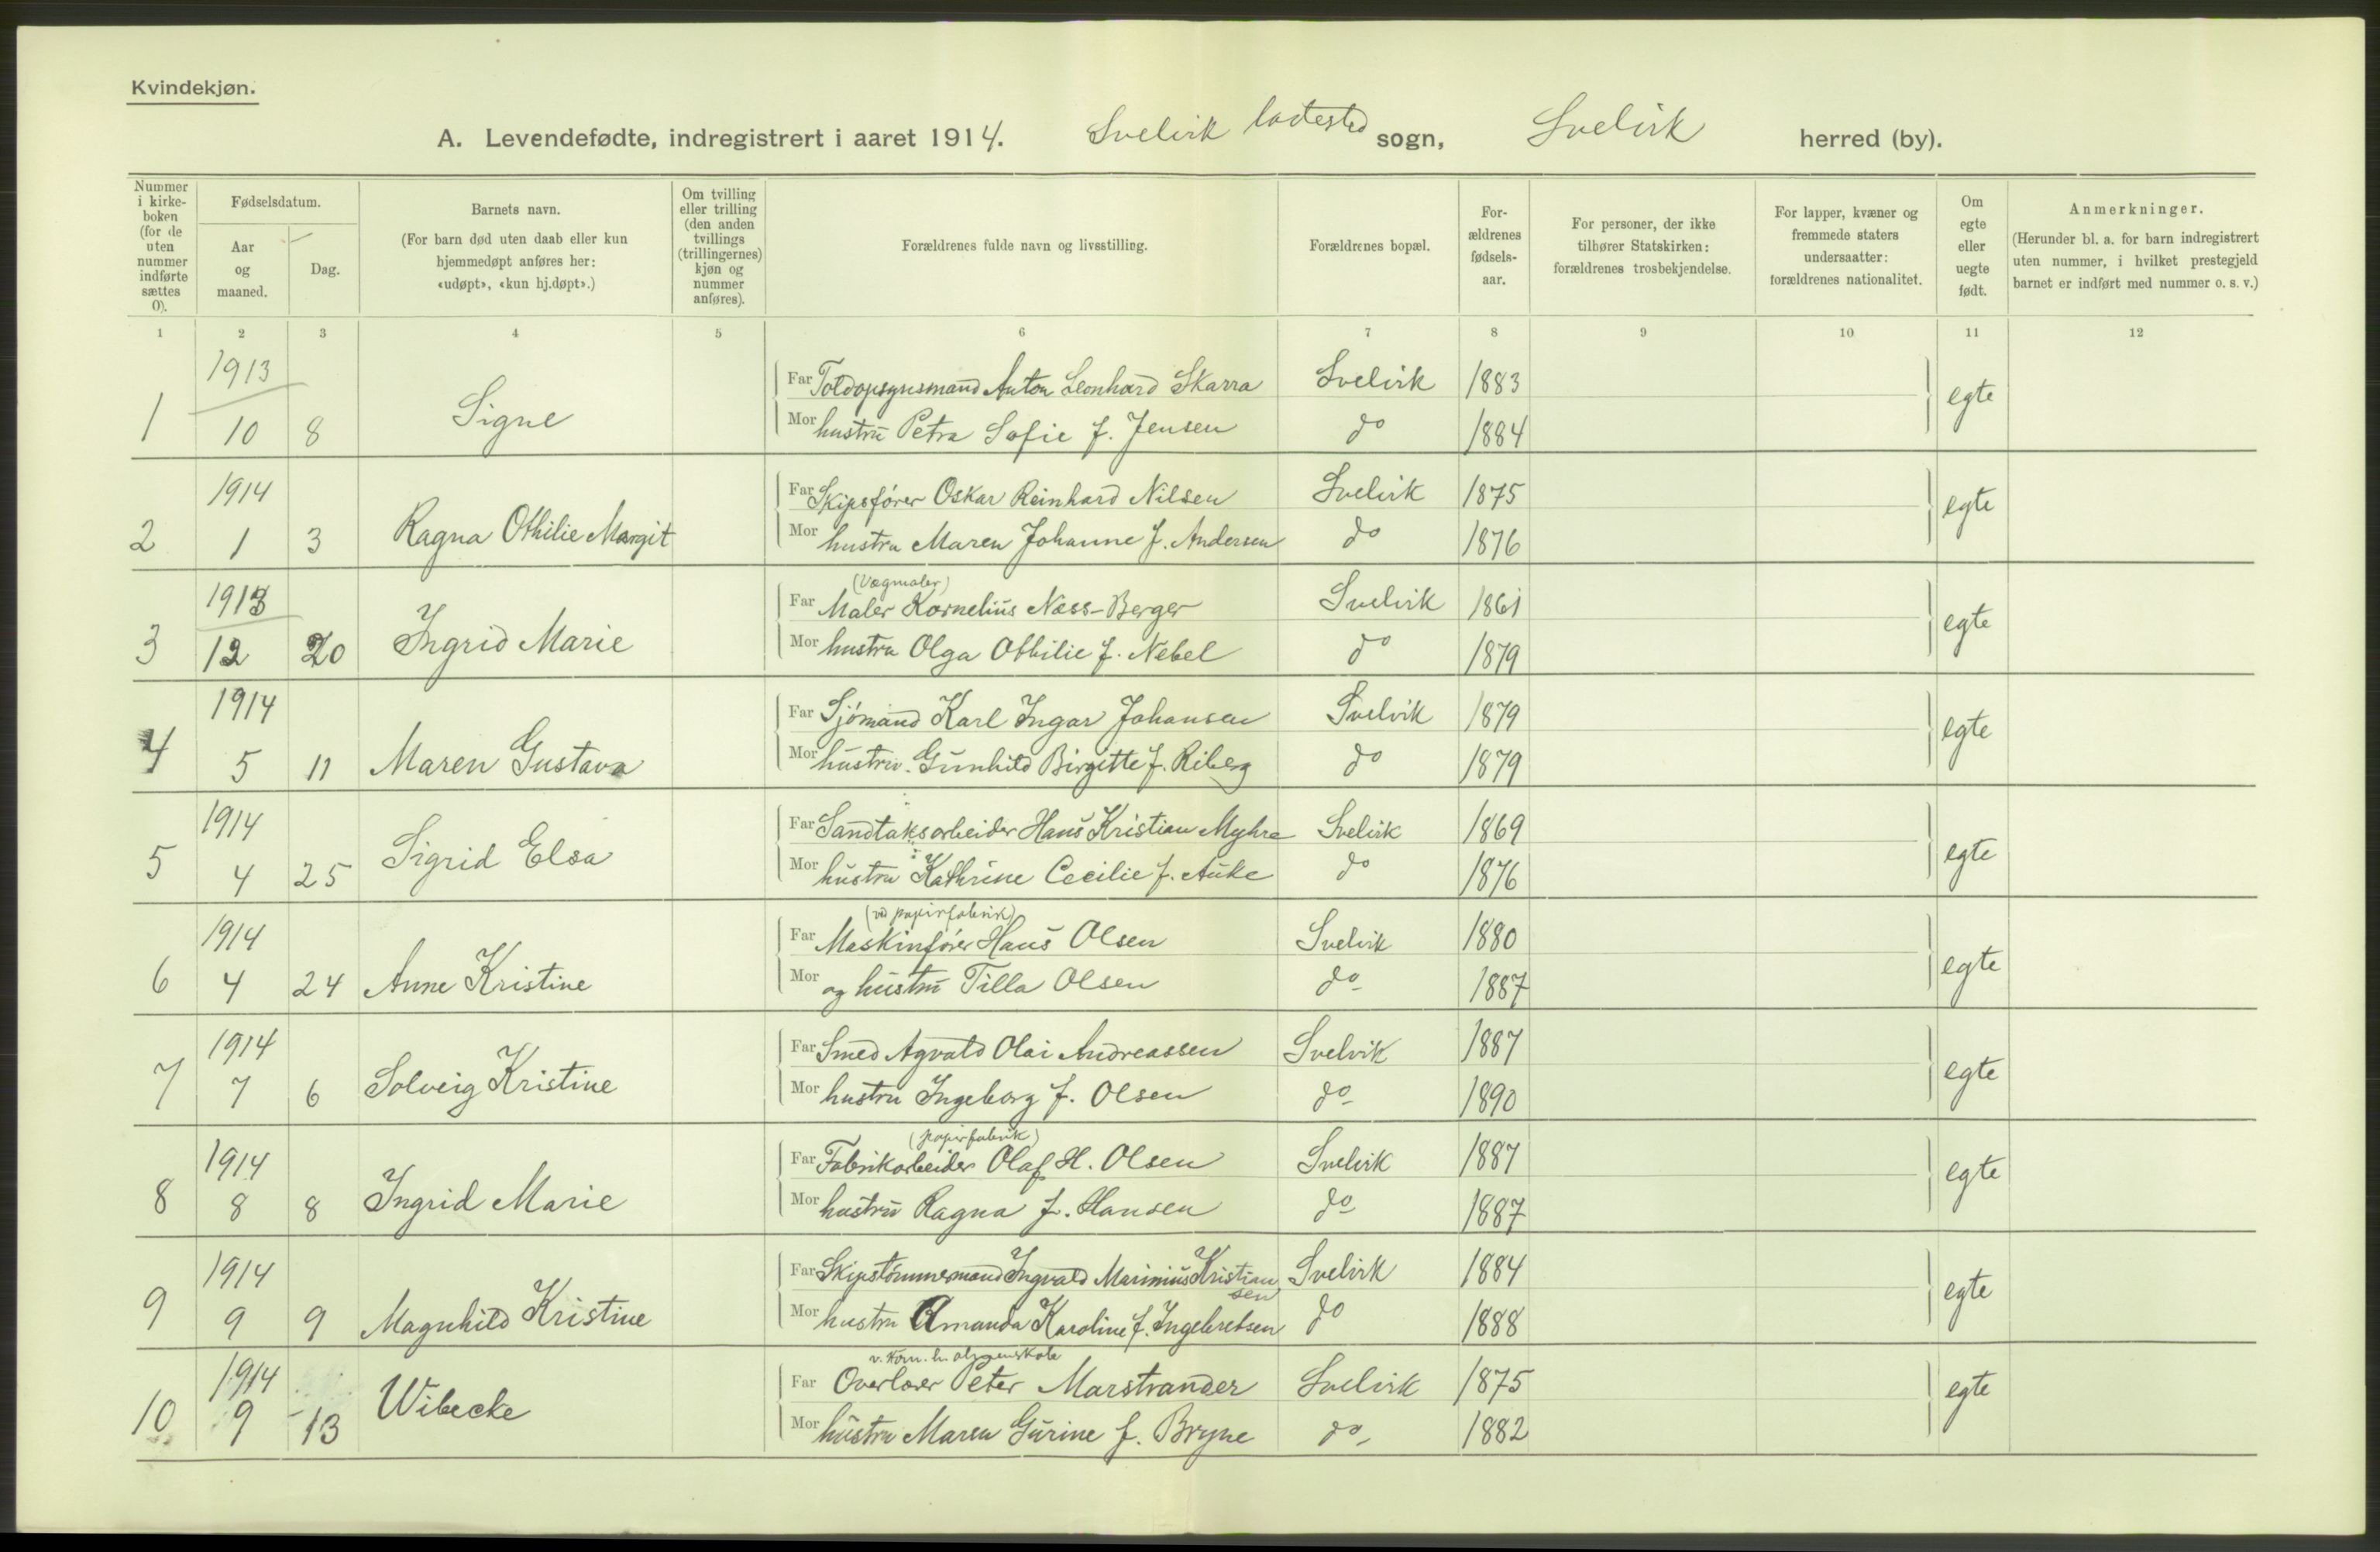 Kvindekjøn.
A. Levendefødte, indregistrert i aaret 1914. Svelvik ladested sogn, Svelvik herred (by).
Nummer i kirkeboken (for de uten nummer indførte sættes 0).
Fødselsdatum.
Aar og maaned.
Dag.
Barnets navn.
(For barn død uten daab eller kun hjemmedøpt anføres her: «udøpt», «kun hj.døpt».)
Om tvilling eller trilling (den anden tvillings (trillingernes) kjøn og nummer anføres).
Forældrenes fulde navn og livsstilling.
Forældrenes bopæl.
Forældrenes fødselsaar.
For personer, der ikke tilhører Statskirken: forældrenes trosbekjendelse.
For lapper, kvæner og fremmede staters undersaatter: forældrenes nationalitet.
Om egte eller uegte født.
Anmerkninger.
(Herunder bl. a. for barn indregistrert uten nummer, i hvilket prestegjeld barnet er indført med nummer o. s. v.)
1 2 3 4 5 6 7 8 9 10 11 12
1913 Far Toldopsynsmand Anton Leonhard Skarra Svelvik 1883
1 10 8 Signe Mor hustru Petra Sofie f. Jensen do 1884 egte
1914 Far Skipsfører Oskar Reinhard Nilsen Svelvik 1875
2 1 3 Ragna Othilie Margit Mor hustru Maren Johanne f. Andersen do 1876 egte
(Vægmaler)
1913 Far Maler Kornelius Næss-Berger Svelvik 1861
3 12 20 Ingrid Marie Mor hustru Olga Othilie f. Nebel do 1879 egte
1914 Far Sjømand Karl Ingar Johansen Svelvik 1879
4 5 11 Maren Gustava Mor hustru Gunhild Birgitte f. Riberg do 1879 egte
1914 Far Sandtaksarbeider Hans Kristian Myhre Svelvik 1869
5 4 25 Sigrid Elsa Mor hustru Kathrine Cecilie f. Auke do 1876 egte
(ved papirfabrik)
1914 Far Maskinfører Hans Olsen Svelvik 1880
6 4 24 Anne Kristine Mor og hustru Tilla Olsen do 1887 egte
1914 Far Smed Agvald Olai Andreassen Svelvik 1887
7 7 6 Solveig Kristine Mor hustru Ingeborg f. Olsen do 1890 egte
(papirfabrik)
1914 Far Fabrikarbeider Olaf H. Olsen Svelvik 1887
8 8 8 Ingrid Marie Mor hustru Ragna f. Hansen do 1887 egte
1914 Far Skipstømmermand Ingvald Marinius Kristiansen Svelvik 1884
9 9 9 Magnhild Kristine Mor hustru Amanda Karoline f. Ingebretsen do 1888 egte
1914 Far Overlærer Peter Marstrander Svelvik 1875
10 9 13 Wibecke Mor hustru Maren Gurine f. Bryne do 1882 egte